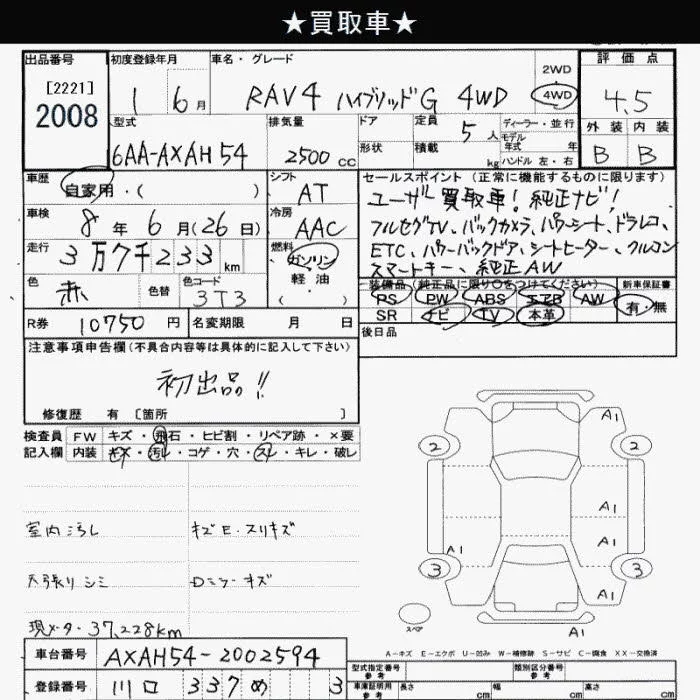 ★買取車★
出品番号 初度登録年月 車名・グレード 2WD 4WD 評価点
[2221]
2008
1 6月
RAV4 ハイブリッドG 4WD
4.5
型式 排気量 ドア 定員 5人 ディーラー・並行 外装 内装
形状 積載 kg モデル年式 年
ハンドル 左・右
6AA-AXAH54 2500cc
B B
車歴 自家用・( ) シフト AT
セールスポイント(正常に機能するものに限ります)
ユーザー買取車!純正ナビ!
フルセグTV、バックカメラ、パワーシート、ドラレコ、
ETC、パワーバックドア、シートヒーター、クルコン
スマートキー、純正AW
車検 8年6月(26日) 冷房 AAC
走行 3万7千233km 燃料 ガソリン
軽油
( )
色 赤 色替 色コード 3T3
装備品(純正品に限り○をつけてください) 新車保証書
PS PW ABS エアB AW 有・無
SR ナビ TV 本革
R券 10750円 名変期限 月 日
後日品
注意事項申告欄(不具合内容等は具体的に記入して下さい)
初出品!!
修復歴 有 [箇所 ]
検査員 FW キズ・飛石・ヒビ割・リペア跡・×要
記入欄 内装 キズ・汚レ・コゲ・穴・スレ・キレ・破レ
室内汚れ キズE・スリキズ
天張りシミ Dミラーキズ
現メーター37,228km
A1
2 2
A1
A1 A1
A1
3 3
スペア
A1
A-キズ E-エクボ U-凹み W-補修跡 S-サビ C-腐食 XX-交換済
車台番号 AXAH54-2002594
型式指定番号 類別区分番号
登録番号 川口 337 め 3
車庫証明用参考 長さ cm 幅 cm 高さ cm